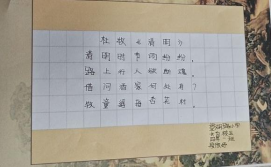 杜牧《清明》
清明时节雨纷纷，
路上行人欲断魂。
借问酒家何处有？
牧童遥指杏花村。